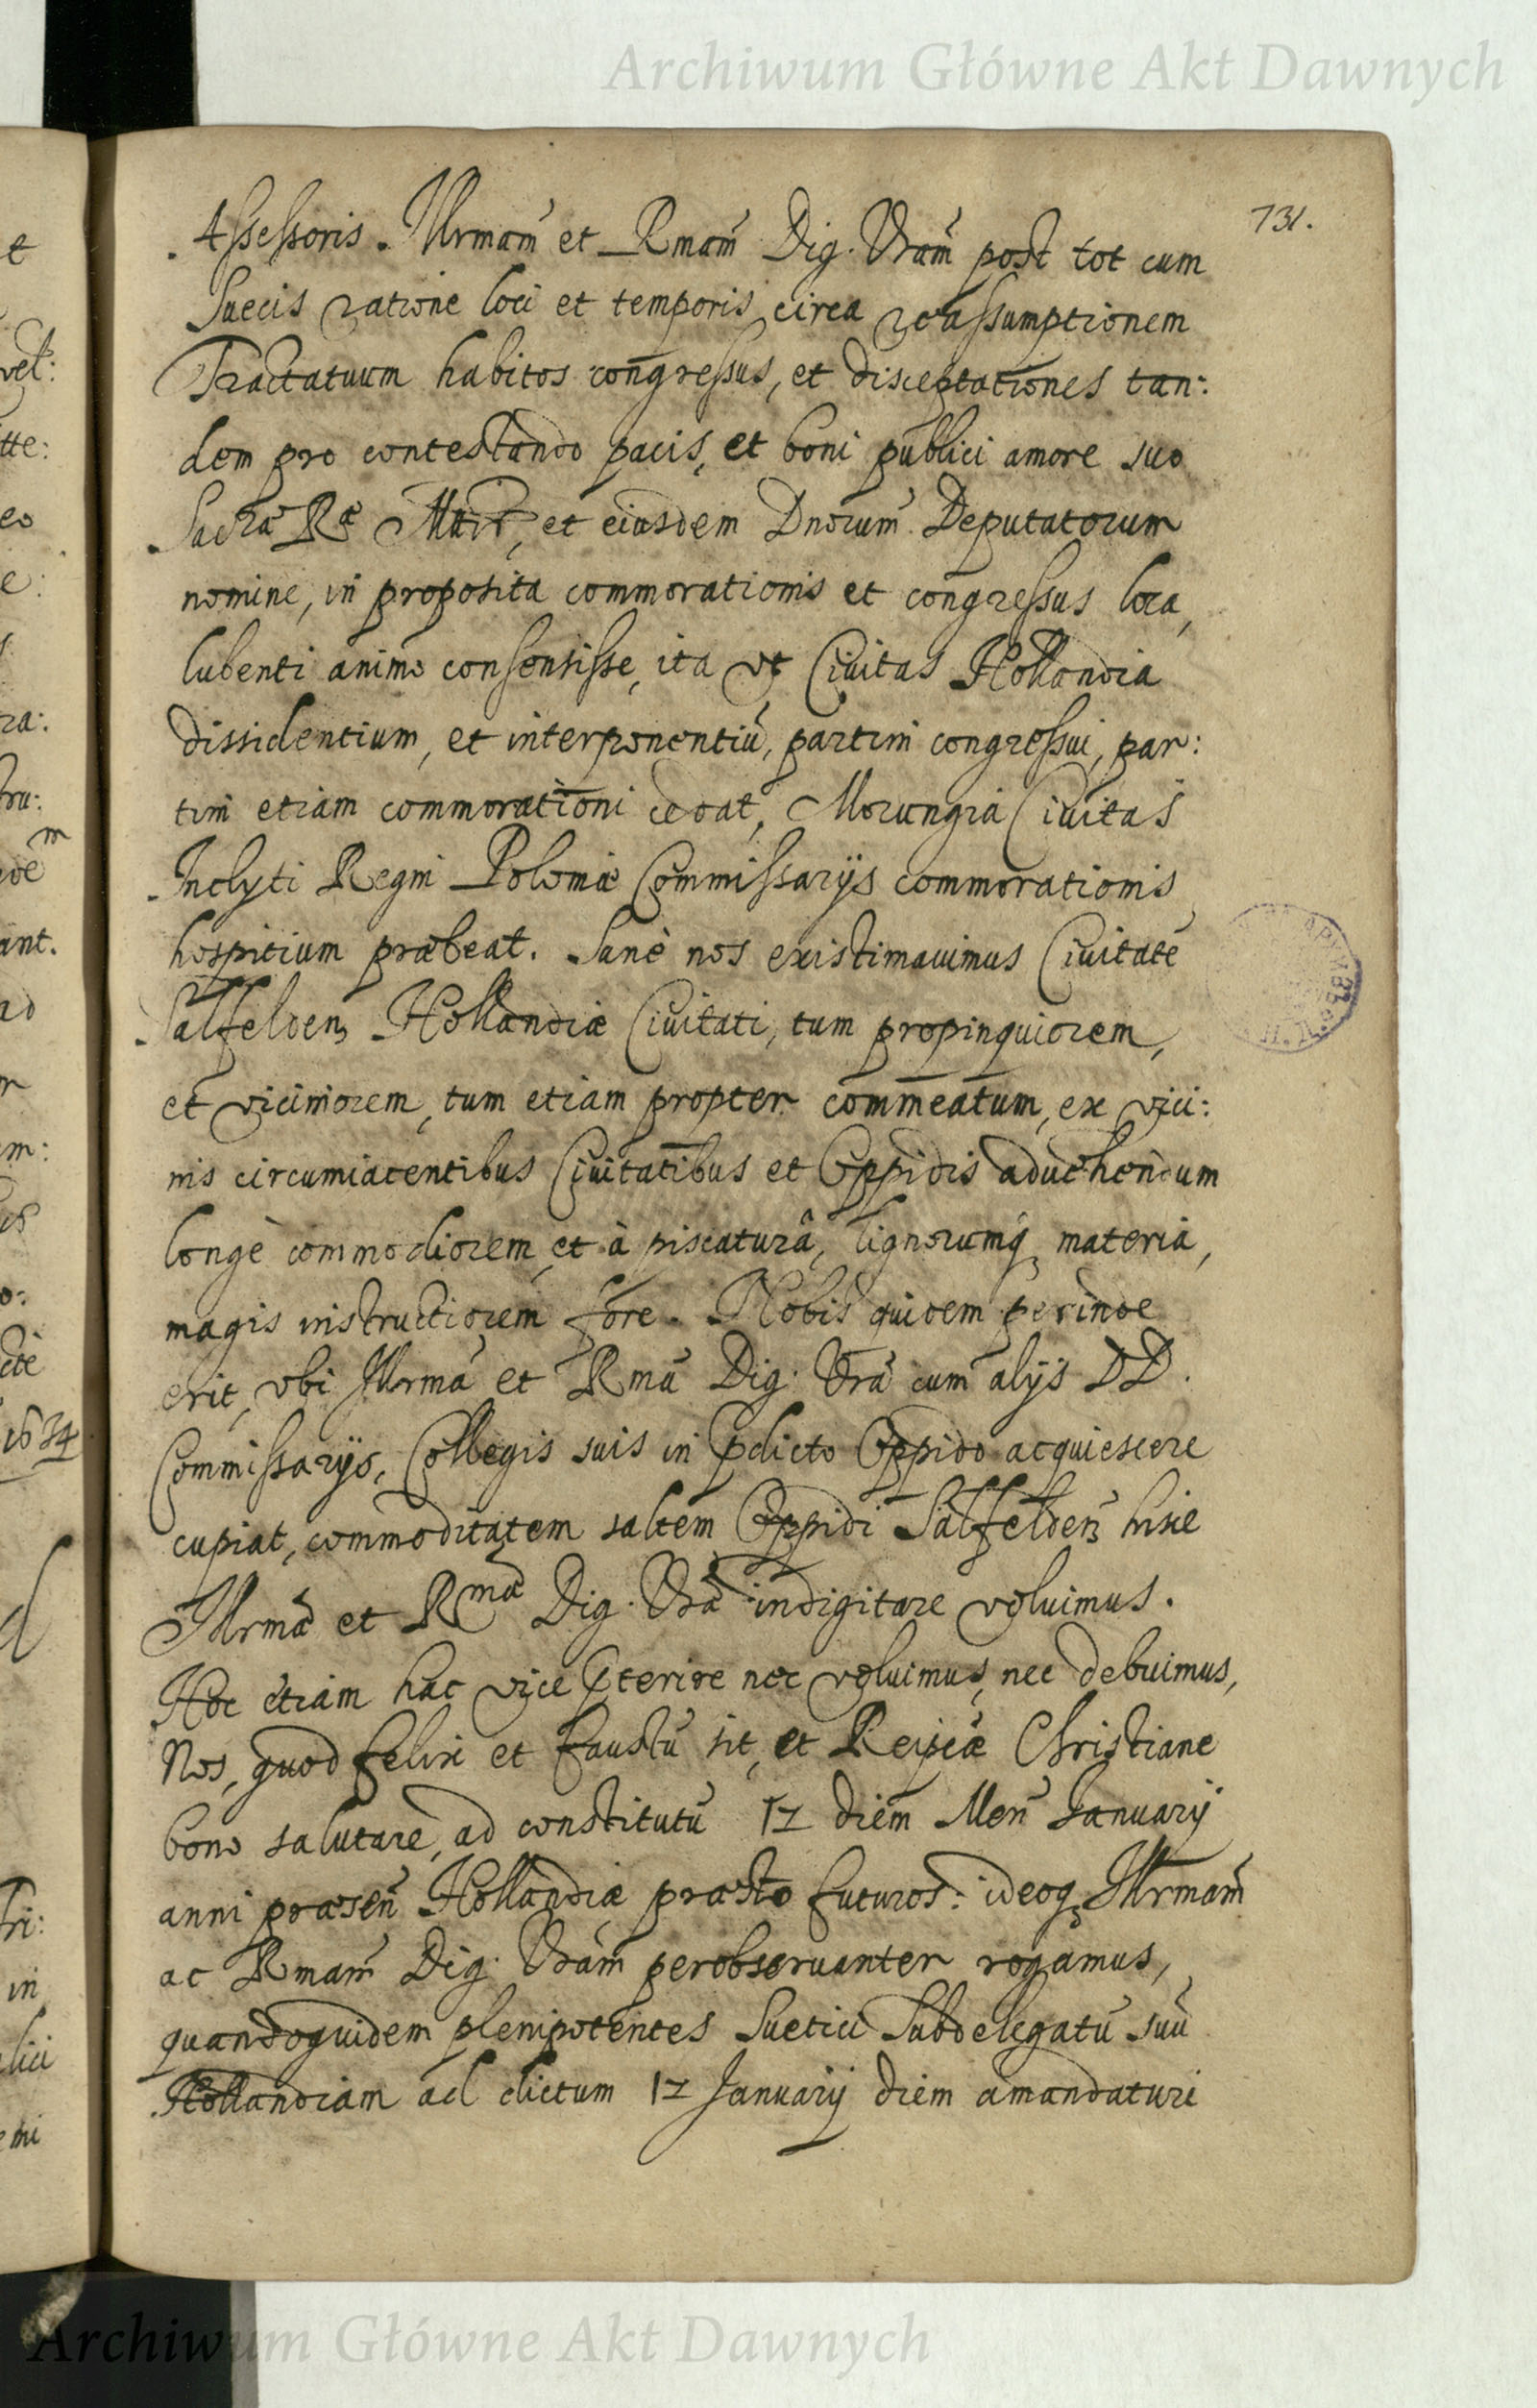 Archiwum Główne Akt Dawnych
731.
Assessoris. Illrmam̃ et Rmam̃ Dig. Vram̃ post tot cum
Suecis ratione loci et temporis circa reassumptionem
Tractatuum habitos congressus, et disceptationes tan:
dem pro contestando pacis, et boni publici amore suo
Sacræ Ræ Mattis, et eiusdem Dnorum Deputatorum
nomine, in proposita commorationis et congressus loca,
lubenti animo consensisse, ita vt Ciuitas Hollandia
dissidentium, et interponentiũ, partim congressui, par:
tim etiam commorationi cedat, Morungia Ciuitas
Inclyti Regni Poloniæ Commissarijs commorationis
hospitium præbeat. Sanè nos existimauimus Ciuitatẽ
Salfelden̄ Hollandiæ Ciuitati, tum propinquiorem,
et viciniorem, tum etiam propter commeatum, ex vici:
nis circumiacentibus Ciuitatibus et Oppidis aduehendum
longè commodiorem, et à piscaturâ, lignorumq̃ materia,
magis instructiorem fore. Nobis quidem perinde
erit, vbi Illrmã et Rmã Dig. Vrã cum alijs DD.
Commissarijs, Collegis suis in p̱dicto Oppido acquiescere
cupiat, commoditatem saltem Oppidi Salfelden̄ hisce
Illrmã et Rmã Dig. Vrã indigitare voluimus.
Hoc etiam hac vice p̱terire nec voluimus, nec debuimus,
Nos, quod felix et faustũ sit, et Reipcæ Christiane
bono salutare, ad constitutũ 17 diem Men̄ Ianuarij
anni præsen̄ Hollandiæ præsto futuros: ideoq̃ Illrmam̃
ac Rmam̃ Dig. Vram̃ perobseruanter rogamus,
quandoquidem plenipotentes Suetici Subdelegatũ suũ
Hollandiam ad dictum 17 Ianuarij diem amandaturi
Archiwum Główne Akt Dawnych